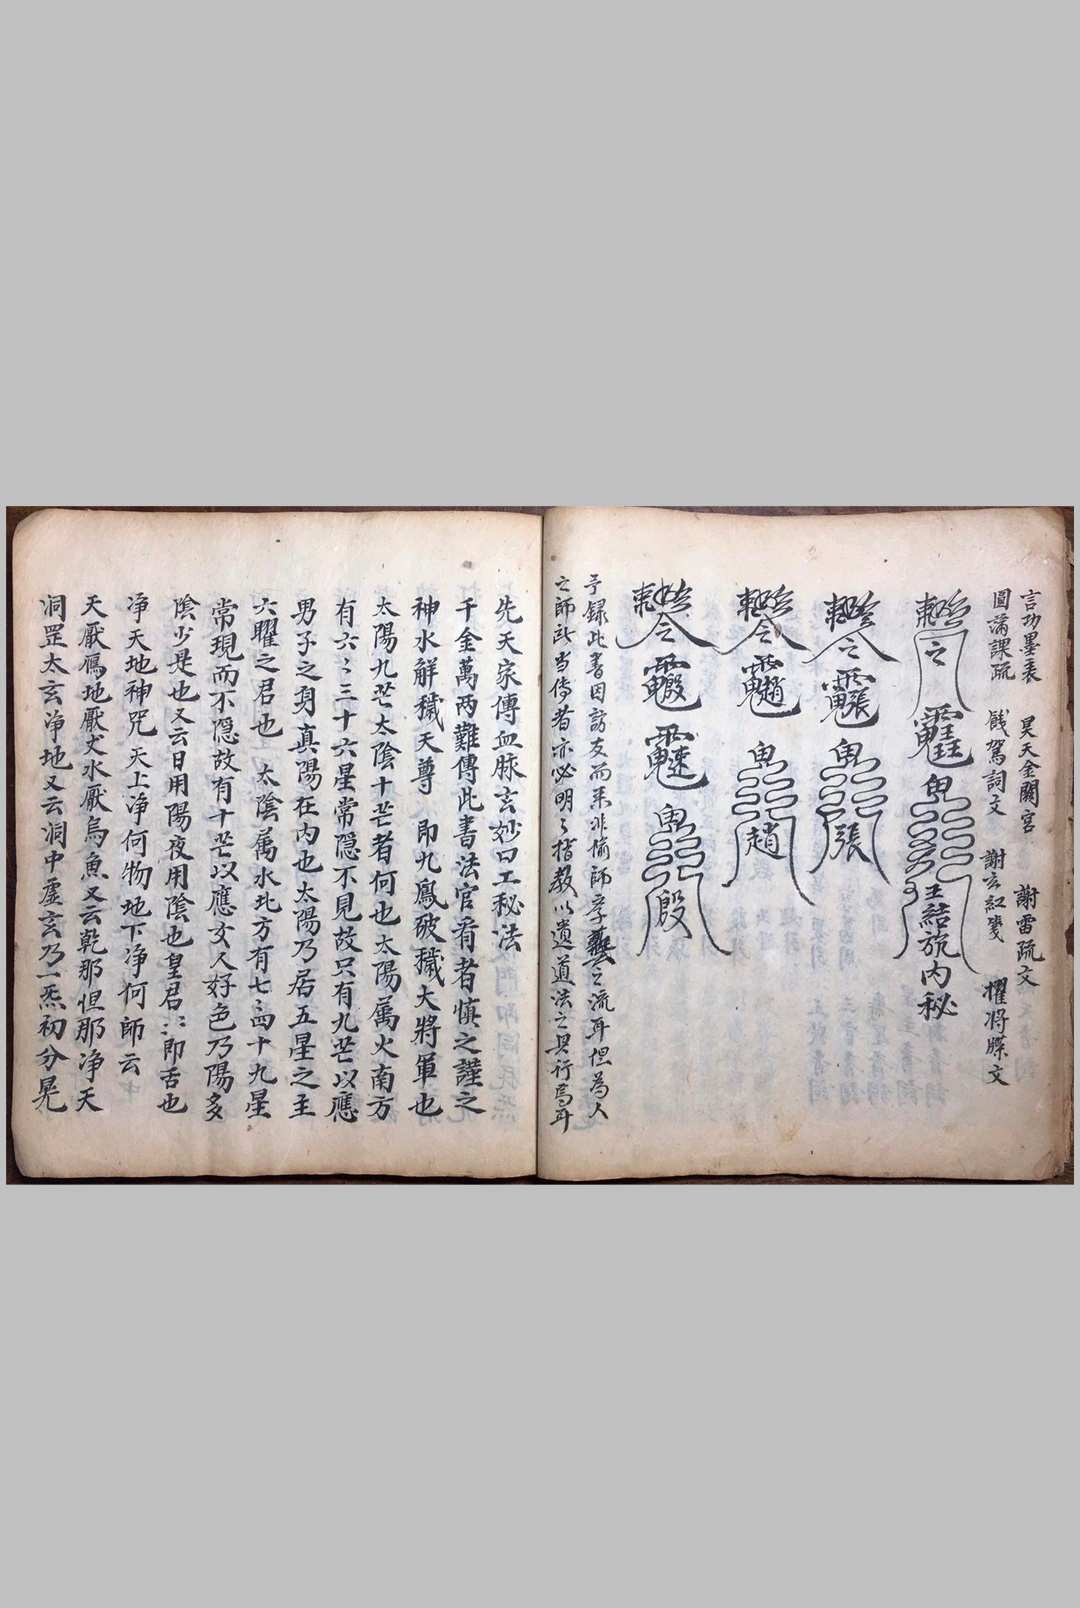 言功墨表 昊天金闕宮 謝雷疏文
圓滿課疏 餞駕詞文 謝玄紅 將牒文
王結旅內秘
張
趙
殷
予録此書因訪友而来非偷師孝 之流耳但為人
之師 当傳者亦必明々指教以遺道法之具行焉耳
先天家傳血脉玄妙口工秘法
千金萬两難傳此書法官看者慎之謹之
神水解穢天尊 即九鳳破穢大將軍也
太陽九芒太陰十芒者何也太陽属火南方
有六〻三十六星常隐不見故只有九芒以應
男子之身真陽在内也太陽乃居五星之主
六曜之君也 太陰属水北方有七〻四十九星
常現而不隠故有十芒以應女人好色乃陽多
陰少是也又云日用陽夜用陰也皇君〻〻即舌也
净天地神咒 天上净何物地下净何師云
天厭鴈地厭犬水厭烏魚又云乾那怛那净天
洞罡太玄净地又云洞中虛玄乃一炁初分晃